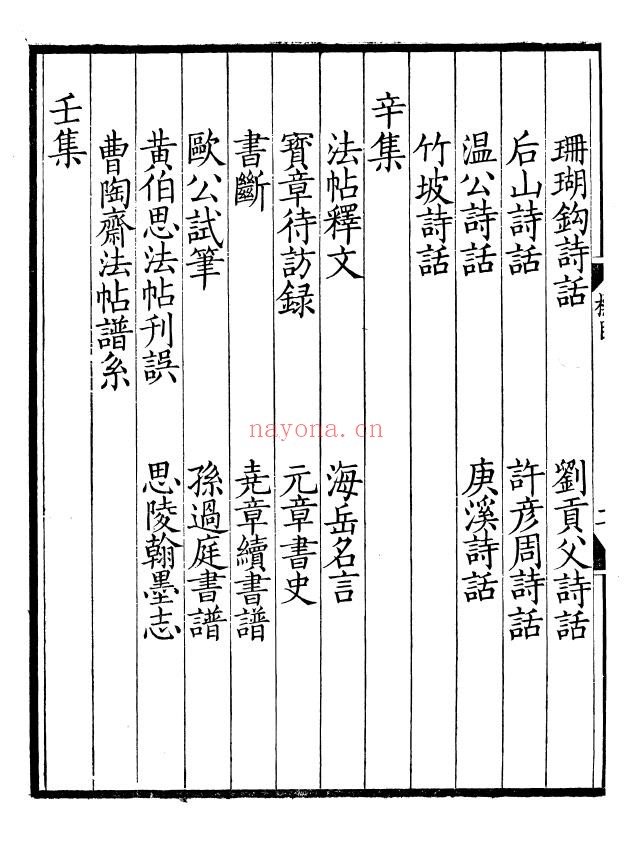 珊瑚鈎詩話　劉貢父詩話
后山詩話　許彥周詩話
溫公詩話　庚溪詩話
竹坡詩話
辛集
法帖釋文　海岳名言
寳章待訪録　元章書史
書斷　堯章續書譜
歐公試筆　孫過庭書譜
黃伯思法帖刊誤　思陵翰墨志
曹陶齋法帖譜系
壬集
nayona.cn